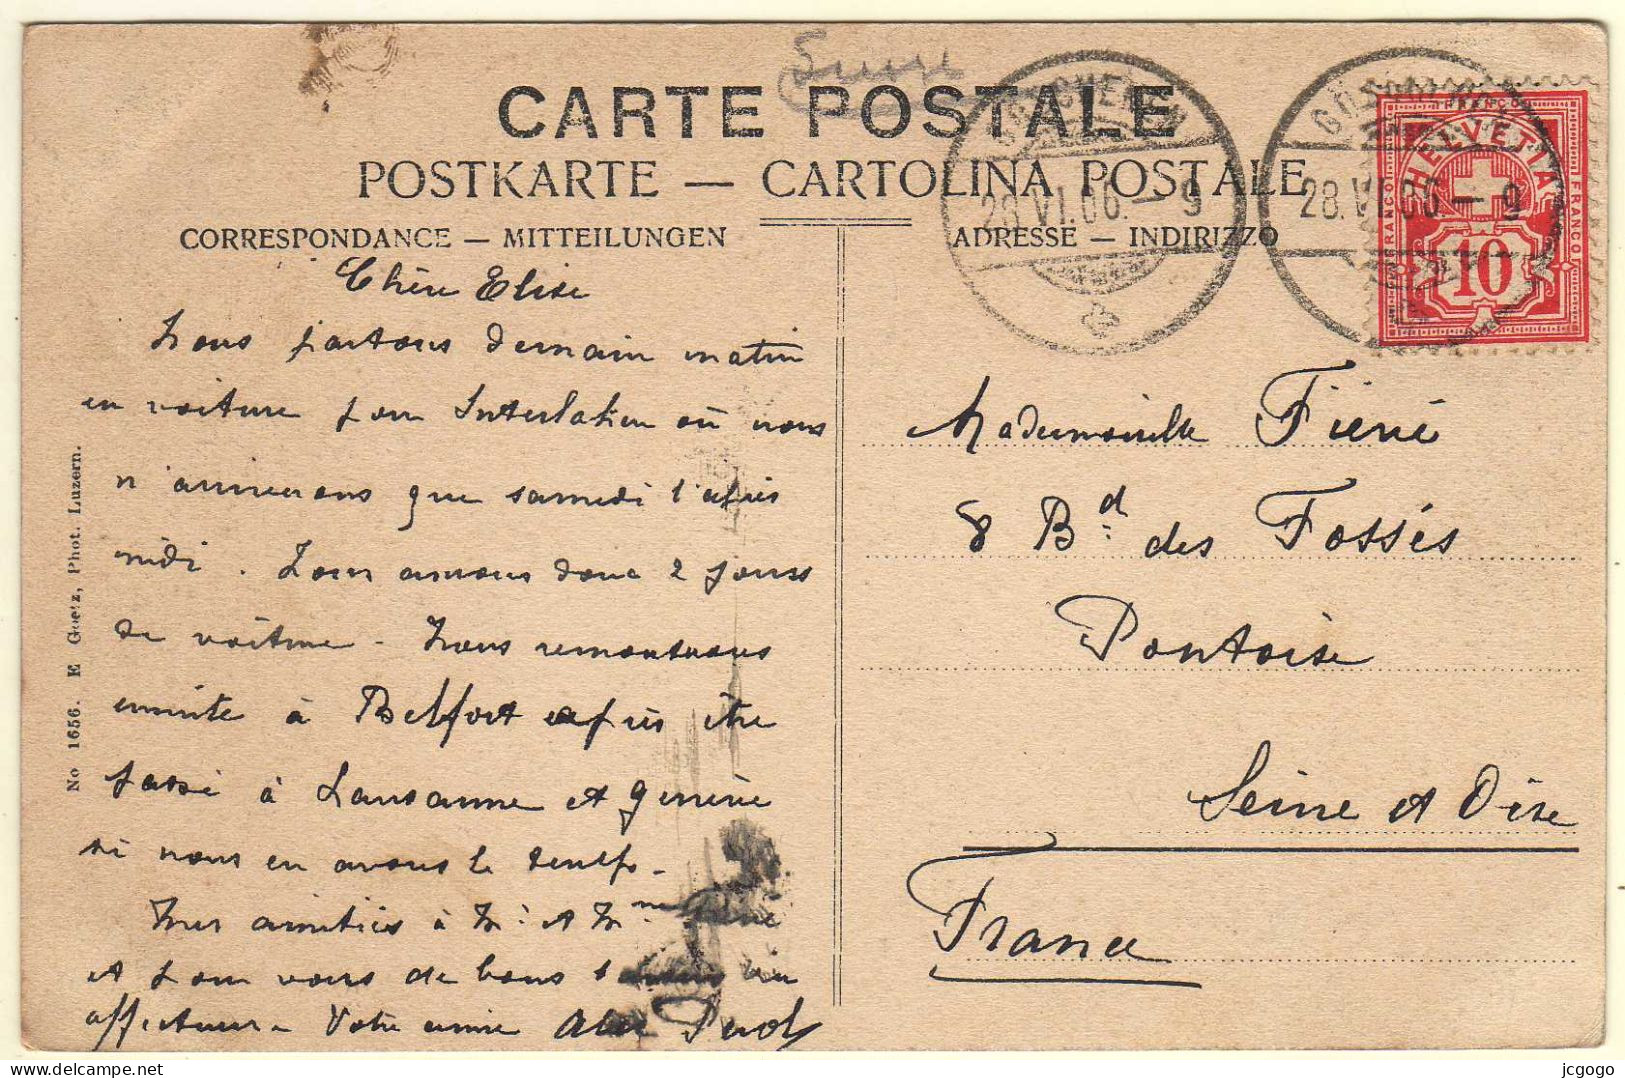 Suisse
CARTE POSTALE
POSTKARTE — CARTOLINA POSTALE
CORRESPONDANCE — MITTEILUNGEN
ADRESSE — INDIRIZZO
GÖSCHENEN
28.VI.06.–9
GÖSCHENEN
28.VI.06–9
FRANCO
HELVETIA
FRANCO
FRANCO
10
Chère Elise
Nous partons demain matin
en voiture pour Interlaken où nous
n'arriverons que samedi l'après
midi. Nous aurons donc 2 jours
de voiture - Nous remonterons
ensuite à Belfort après être
passé à Lausanne et Genève
si nous en avons le temps.
Mes amitiés à Mr et Mme Fiéné
et pour vous de bons baisers bien
affectueux. Votre amie
Mademoiselle Fiéné
8 Bd des Fossés
Pontoise
Seine et Oise
France
No 1656. E Goetz, Phot. Luzern.
jcgogo